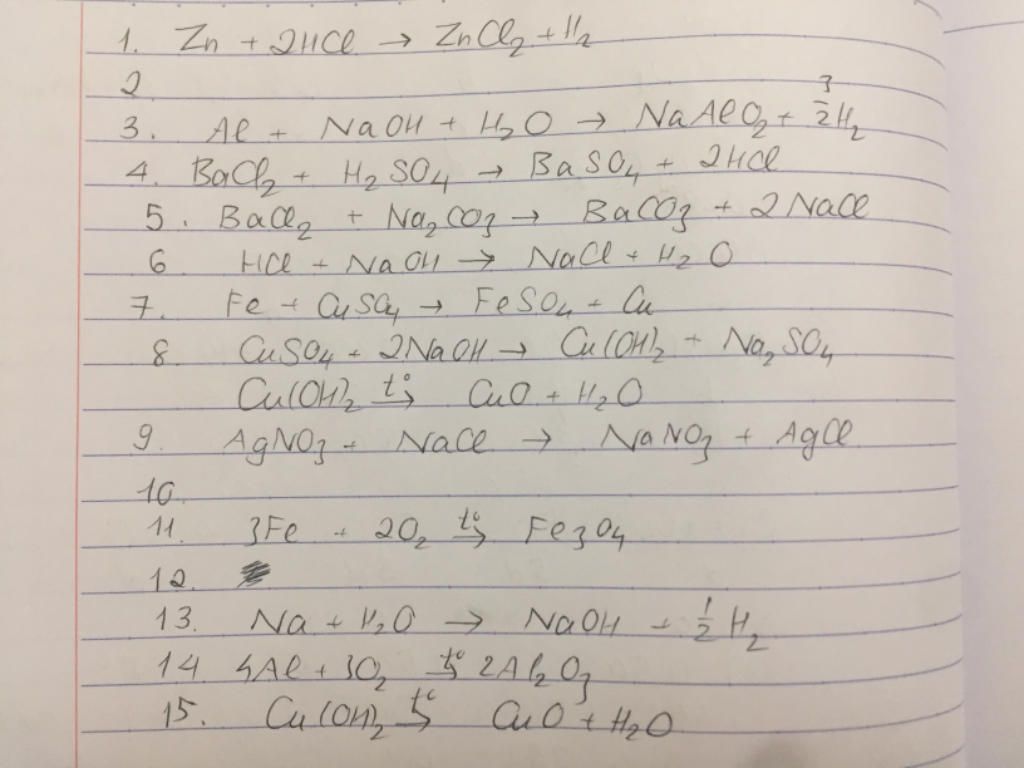 1. Zn + 2HCl → ZnCl₂ + H₂
2.
3. Al + NaOH + H₂O → NaAlO₂ + 3/2 H₂
4. BaCl₂ + H₂SO₄ → BaSO₄ + 2HCl
5. BaCl₂ + Na₂CO₃ → BaCO₃ + 2NaCl
6 HCl + NaOH → NaCl + H₂O
7. Fe + CuSO₄ → FeSO₄ + Cu
8 CuSO₄ + 2NaOH → Cu(OH)₂ + Na₂SO₄
Cu(OH)₂ t°→ CuO + H₂O
9. AgNO₃ + NaCl → NaNO₃ + AgCl
10.
11. 3Fe + 2O₂ t°→ Fe₃O₄
12.
13. Na + H₂O → NaOH + 1/2 H₂
14 4Al + 3O₂ t°→ 2Al₂O₃
15. Cu(OH)₂ t°→ CuO + H₂O